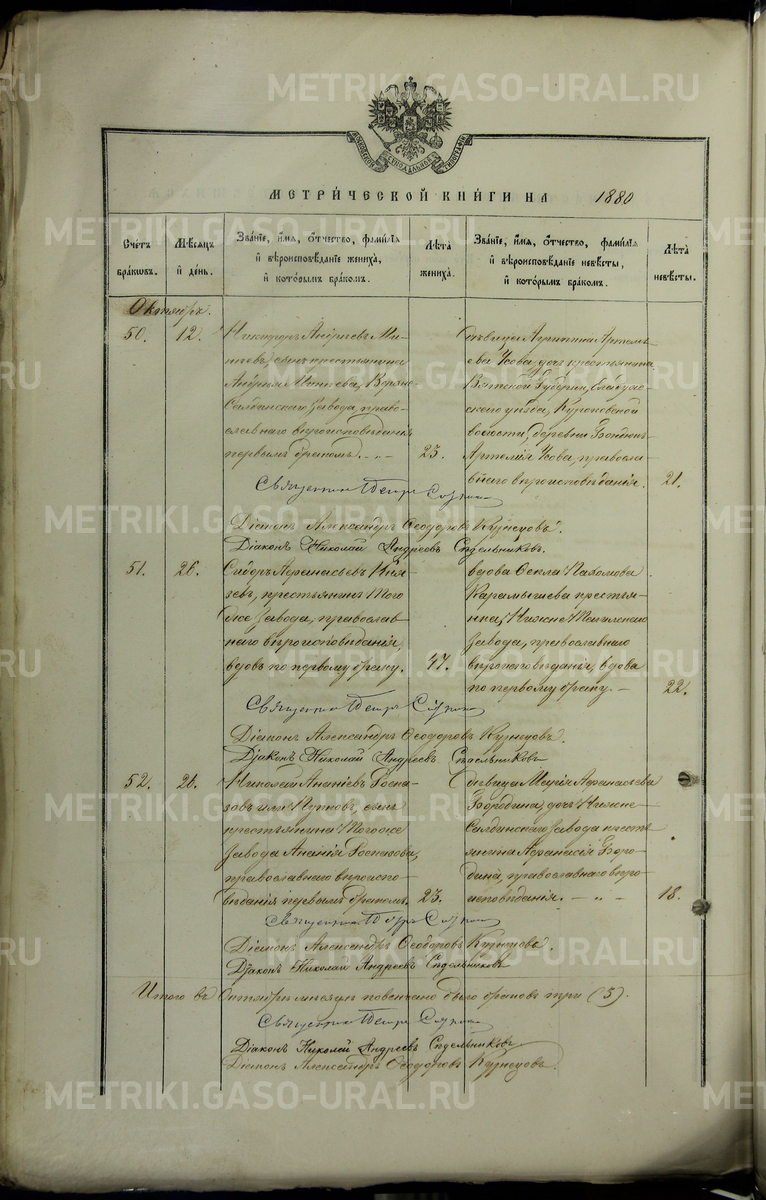 МЕТРИ́ЧЕСКОЙ КНИ́ГИ НА 1880
Сче́тъ бра́ковъ.
Мѣ́сяцъ и́ де́нь.
Зва́нїе, и́мѧ, ѻ́тчество, фами́лїѧ и́ вѣроисповѣ́данїе жениха́, и́ кото́рымъ бра́комъ.
Лѣ́та жениха́.
Зва́нїе, и́мѧ, ѻ́тчество, фами́лїѧ и́ вѣроисповѣ́данїе невѣ́сты, и́ кото́рымъ бра́комъ.
Лѣ́та невѣ́сты.
Октябрь.
50. 12.
Никифоръ Андреевъ Ми-
нѣевъ, сынъ крестьянина
Андрея Минѣева, Верхне-
Салдинскаго Завода, право-
славнаго вѣроисповѣданія
первымъ бракомъ.
23.
дѣвица Агрипина Артемь-
ева Усова, дочь крестьянина
Вятской Губерніи, Елабуж-
скаго уѣзда,
волости, деревни
Артемія Усова, правосла-
внаго вѣроисповѣданія.
21.
Священник Петр
Діаконъ Александръ Ѳеодоровъ Кузнецовъ.
Діаконъ Николай Андреевъ Сѣдельниковъ.
51. 26.
Сидоръ Афанасьевъ Кня-
зевъ, крестьянинъ Того
же Завода, православ-
наго вѣроисповѣданія,
вдовъ по первому браку.
47.
вдова Ѳекла Пахомова
Карамышева крестьян-
ка, Нижне Тагильскаго
Завода, православнаго
вѣроисповѣданія, вдова
по первому браку.
22.
Священник Петр
Діаконъ Александръ Ѳеодоровъ Кузнецовъ.
Діаконъ Николай Андреевъ Сѣдельниковъ
52. 26.
Николай Ананіевъ
или сынъ
крестьянина Того же
Завода Ананія
православнаго вѣроиспо-
вѣданія первымъ бракомъ.
23.
Дѣвица Марія Афанасьева
Бородина, дочь Нижне-
Салдинскаго Завода кресть-
янина Афанасія Боро-
дина, православнаго вѣро-
исповѣданія.
18.
Священник Петр
Діаконъ Александръ Ѳеодоровъ Кузнецовъ.
Діаконъ Николай Андреевъ Сѣдельниковъ
Итого въ Октябрѣ мѣсяцѣ повенчано было браковъ три (3).
Священник Петр
Діаконъ Николай Андреевъ Сѣдельниковъ
Діаконъ Александръ Ѳеодоровъ Кузнецовъ.
METRIKI.GASO-URAL.RU